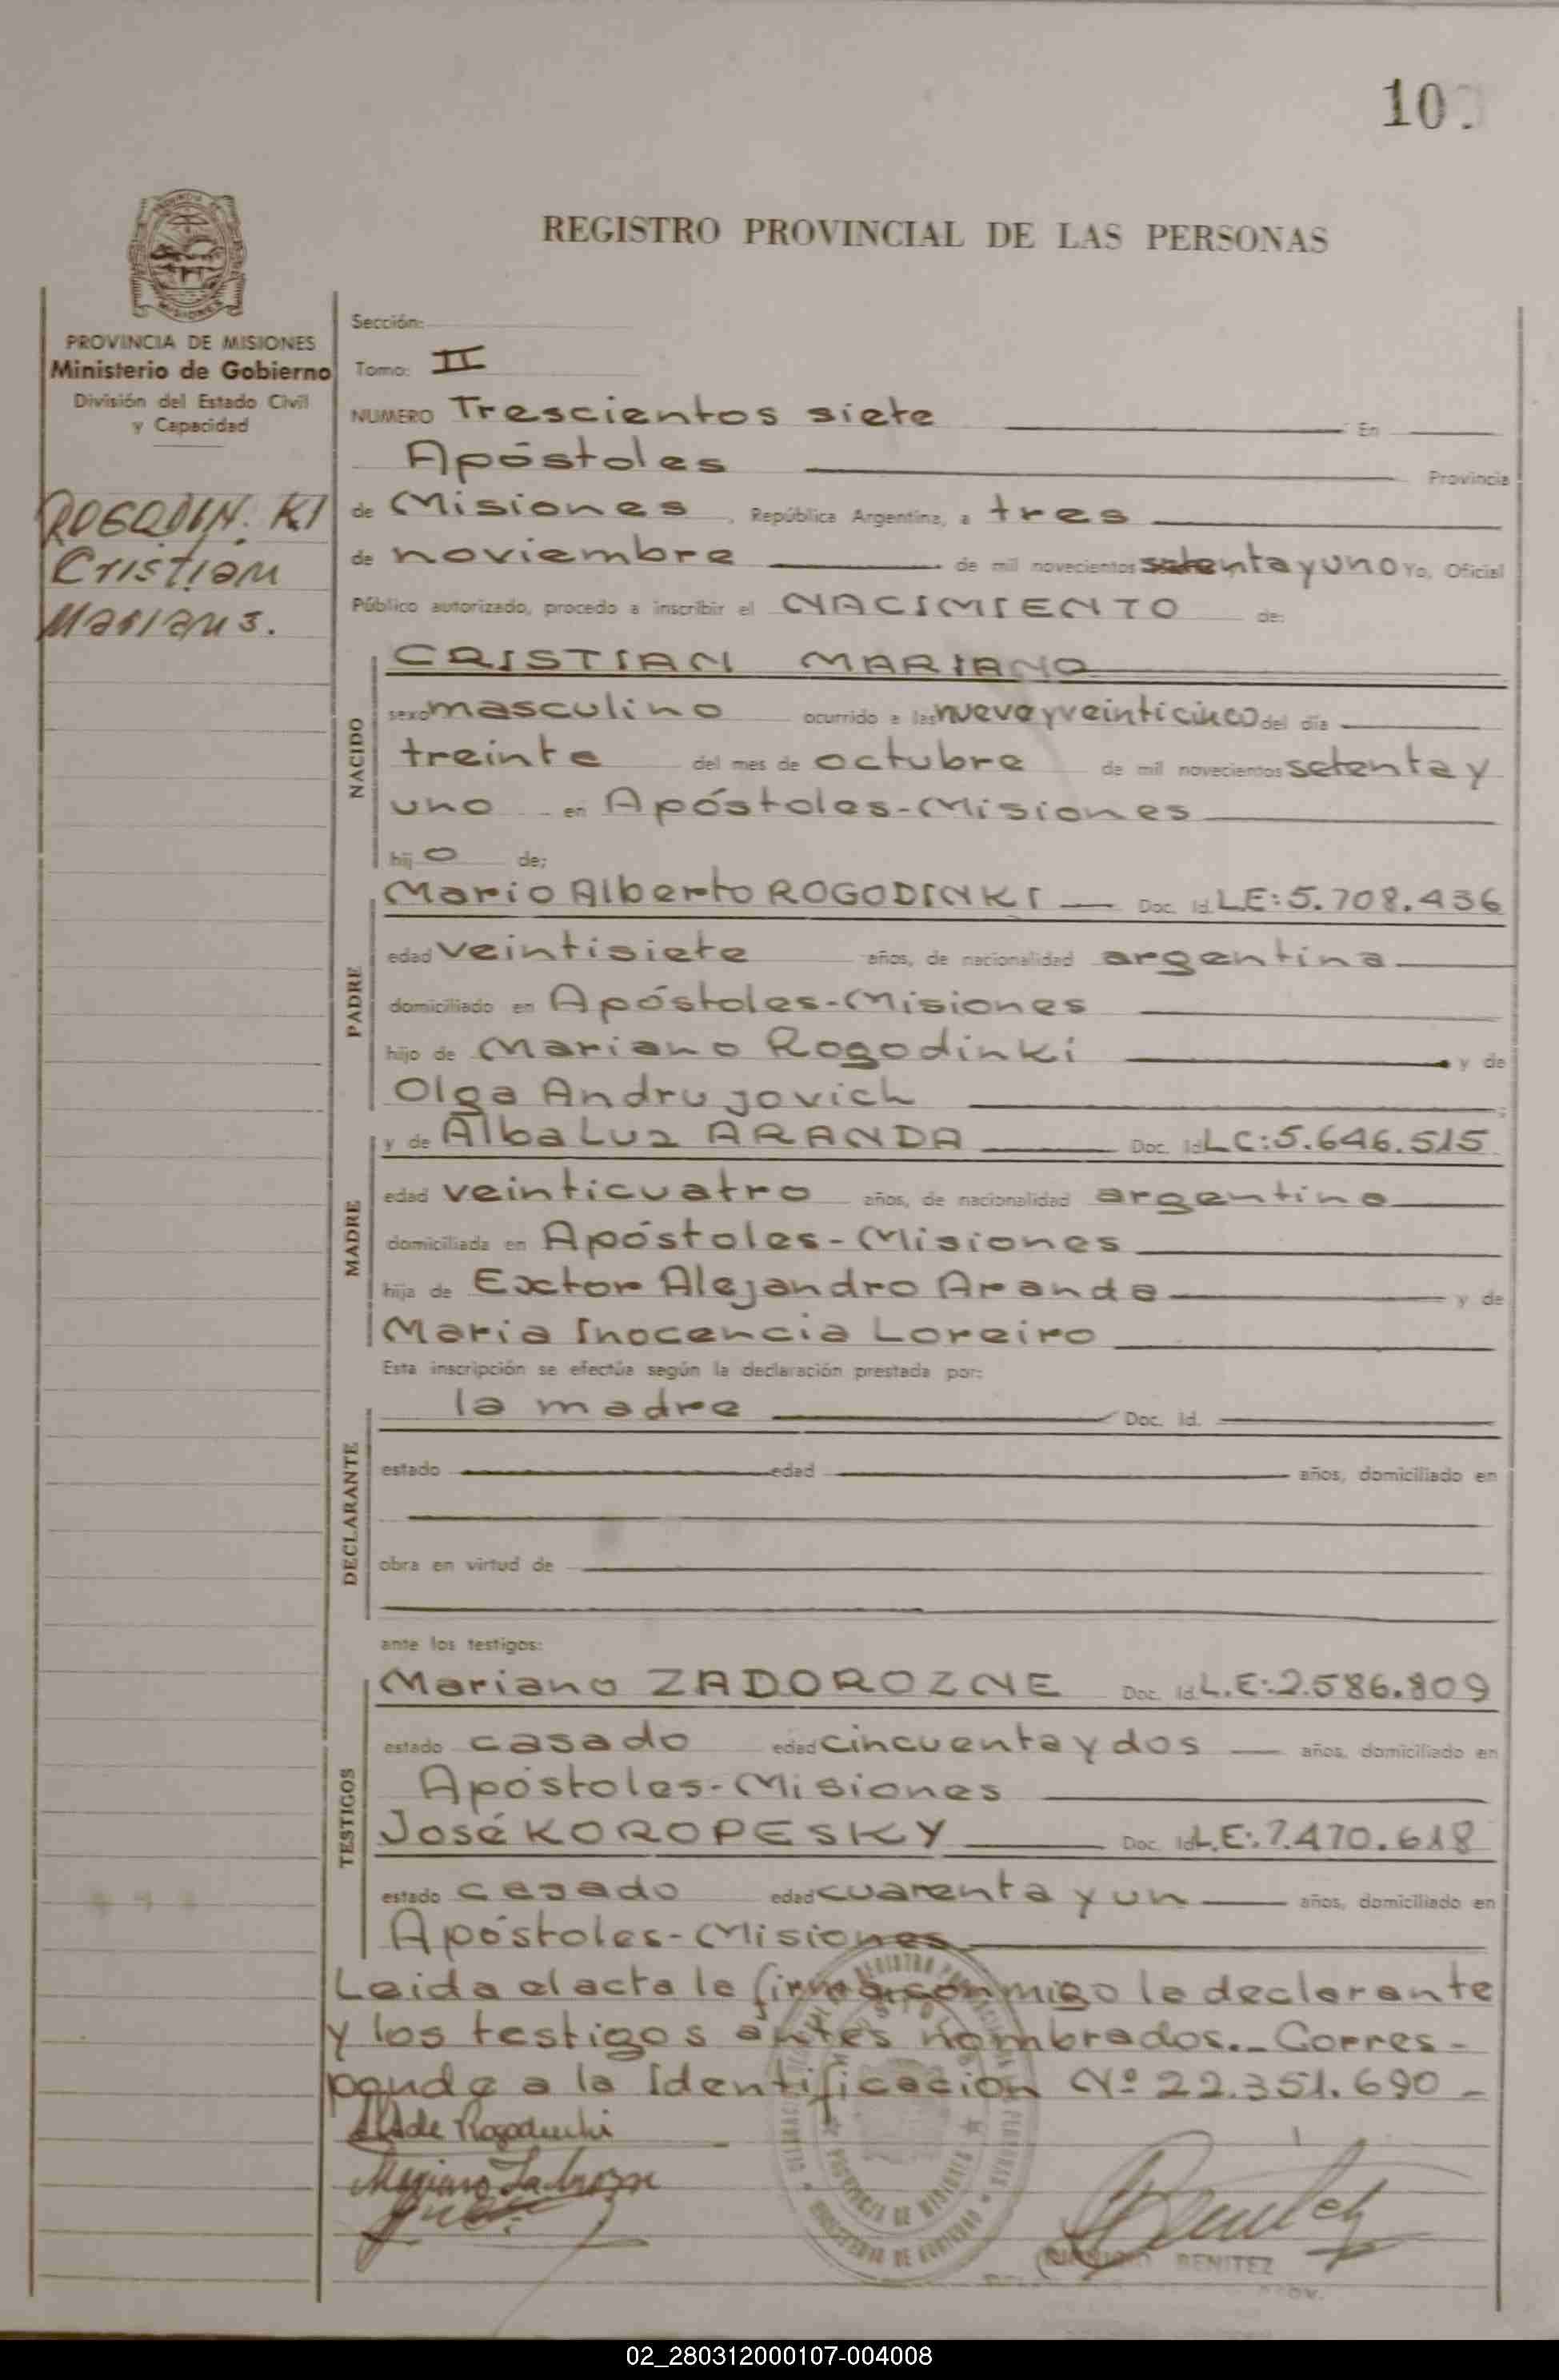 10
REGISTRO PROVINCIAL DE LAS PERSONAS
PROVINCIA DE MISIONES
Ministerio de Gobierno
División del Estado Civil
y Capacidad
ROGODIN. KI
Cristian
Mariano.
Sección:
Tomo: II
NUMERO Trescientos siete En
Apóstoles Provincia
de Misiones, República Argentina, a tres
de noviembre de mil novecientos setenta y uno Yo, Oficial
Público autorizado, procedo a inscribir el NACIMIENTO de:
NACIDO
CRISTIAN MARIANO
sexo masculino ocurrido a las nueve y veinticinco del día
treinta del mes de octubre de mil novecientos setenta y
uno en Apóstoles-Misiones
hijo de:
PADRE
Mario Alberto ROGODINKI Doc. Id. LE: 5.708.436
edad veintisiete años, de nacionalidad argentina
domiciliado en Apóstoles-Misiones
hijo de Mariano Rogodinki y de
Olga Andrujovich
MADRE
y de Alba Luz ARANDA Doc. Id. LC: 5.646.515
edad veinticuatro años, de nacionalidad argentina
domiciliada en Apóstoles-Misiones
hija de Exctor Alejandro Aranda y de
Maria Inocencia Loreiro
Esta inscripción se efectúa según la declaración prestada por:
DECLARANTE
la madre Doc. Id.
estado edad años, domiciliado en
obra en virtud de
ante los testigos:
TESTIGOS
Mariano ZADOROZNE Doc. Id. L.E: 2.586.809
estado casado edad cincuenta y dos años, domiciliado en
Apóstoles-Misiones
José KOROPESKY Doc. Id. L.E: 7.470.618
estado casado edad cuarenta y un años, domiciliado en
Apóstoles-Misiones
Leida el acta la firma conmigo la declarante
y los testigos antes nombrados.- Corres-
ponde a la Identificación Nº 22.351.690-
PROVINCIA DE MISIONES
MINISTERIO DE GOBIERNO
BENITEZ
02_280312000107-004008